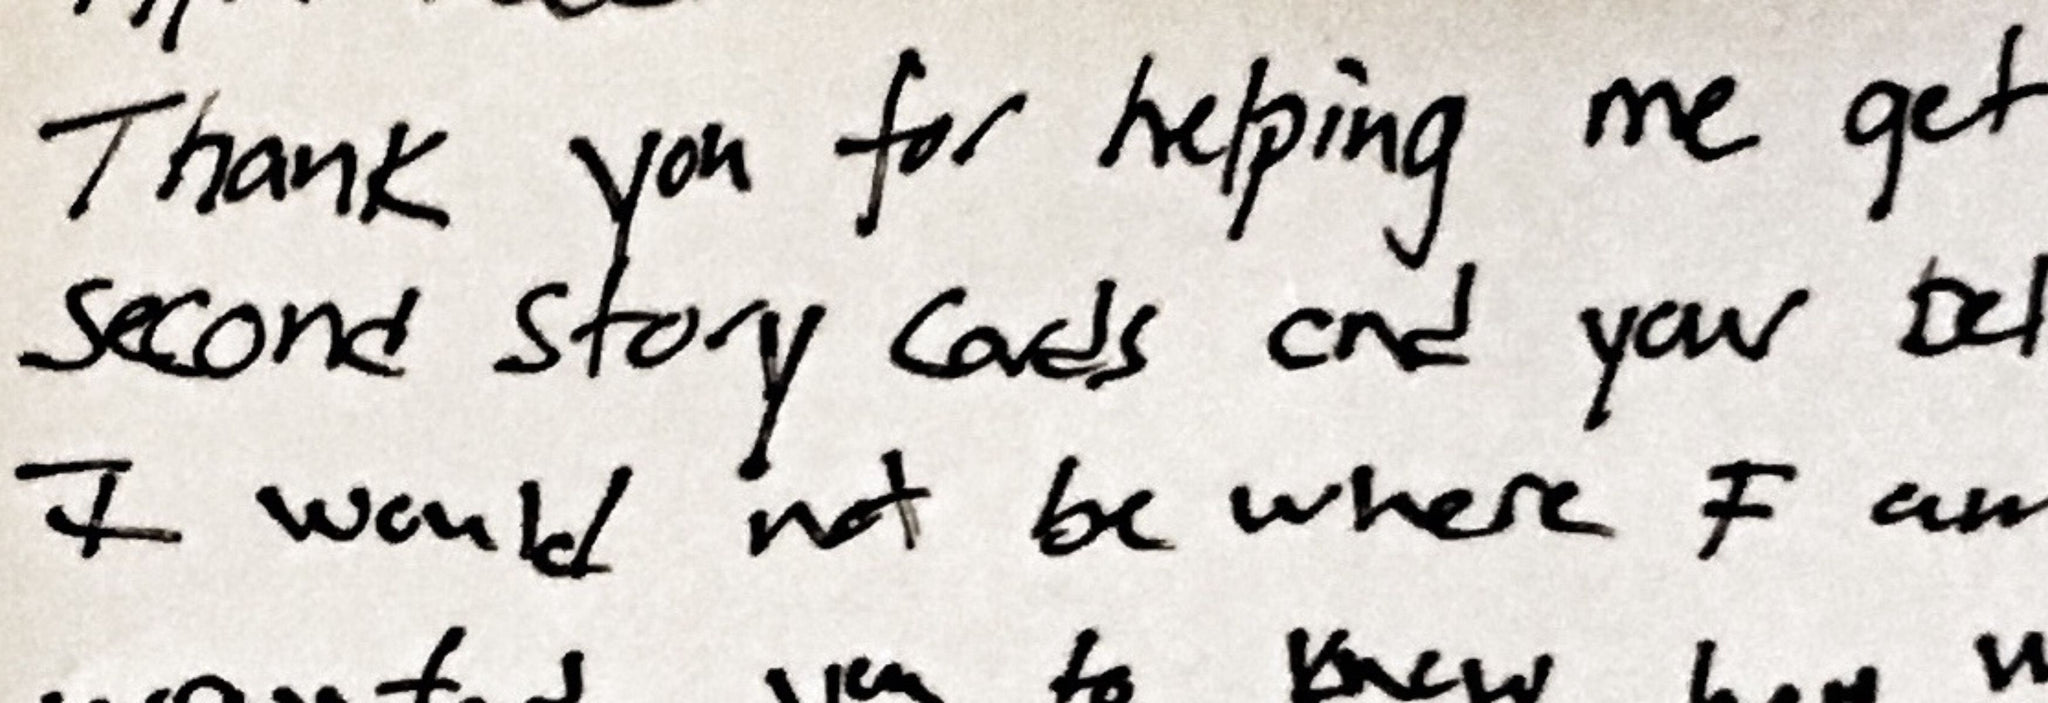 Thank you for helping me get
second story Cards and your
I would not be where I am
wanted you to know how